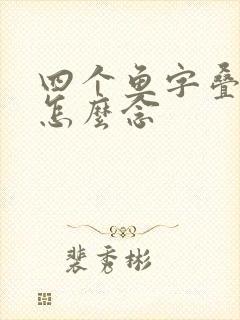 四个鱼字叠
怎麼念
裴秀彬